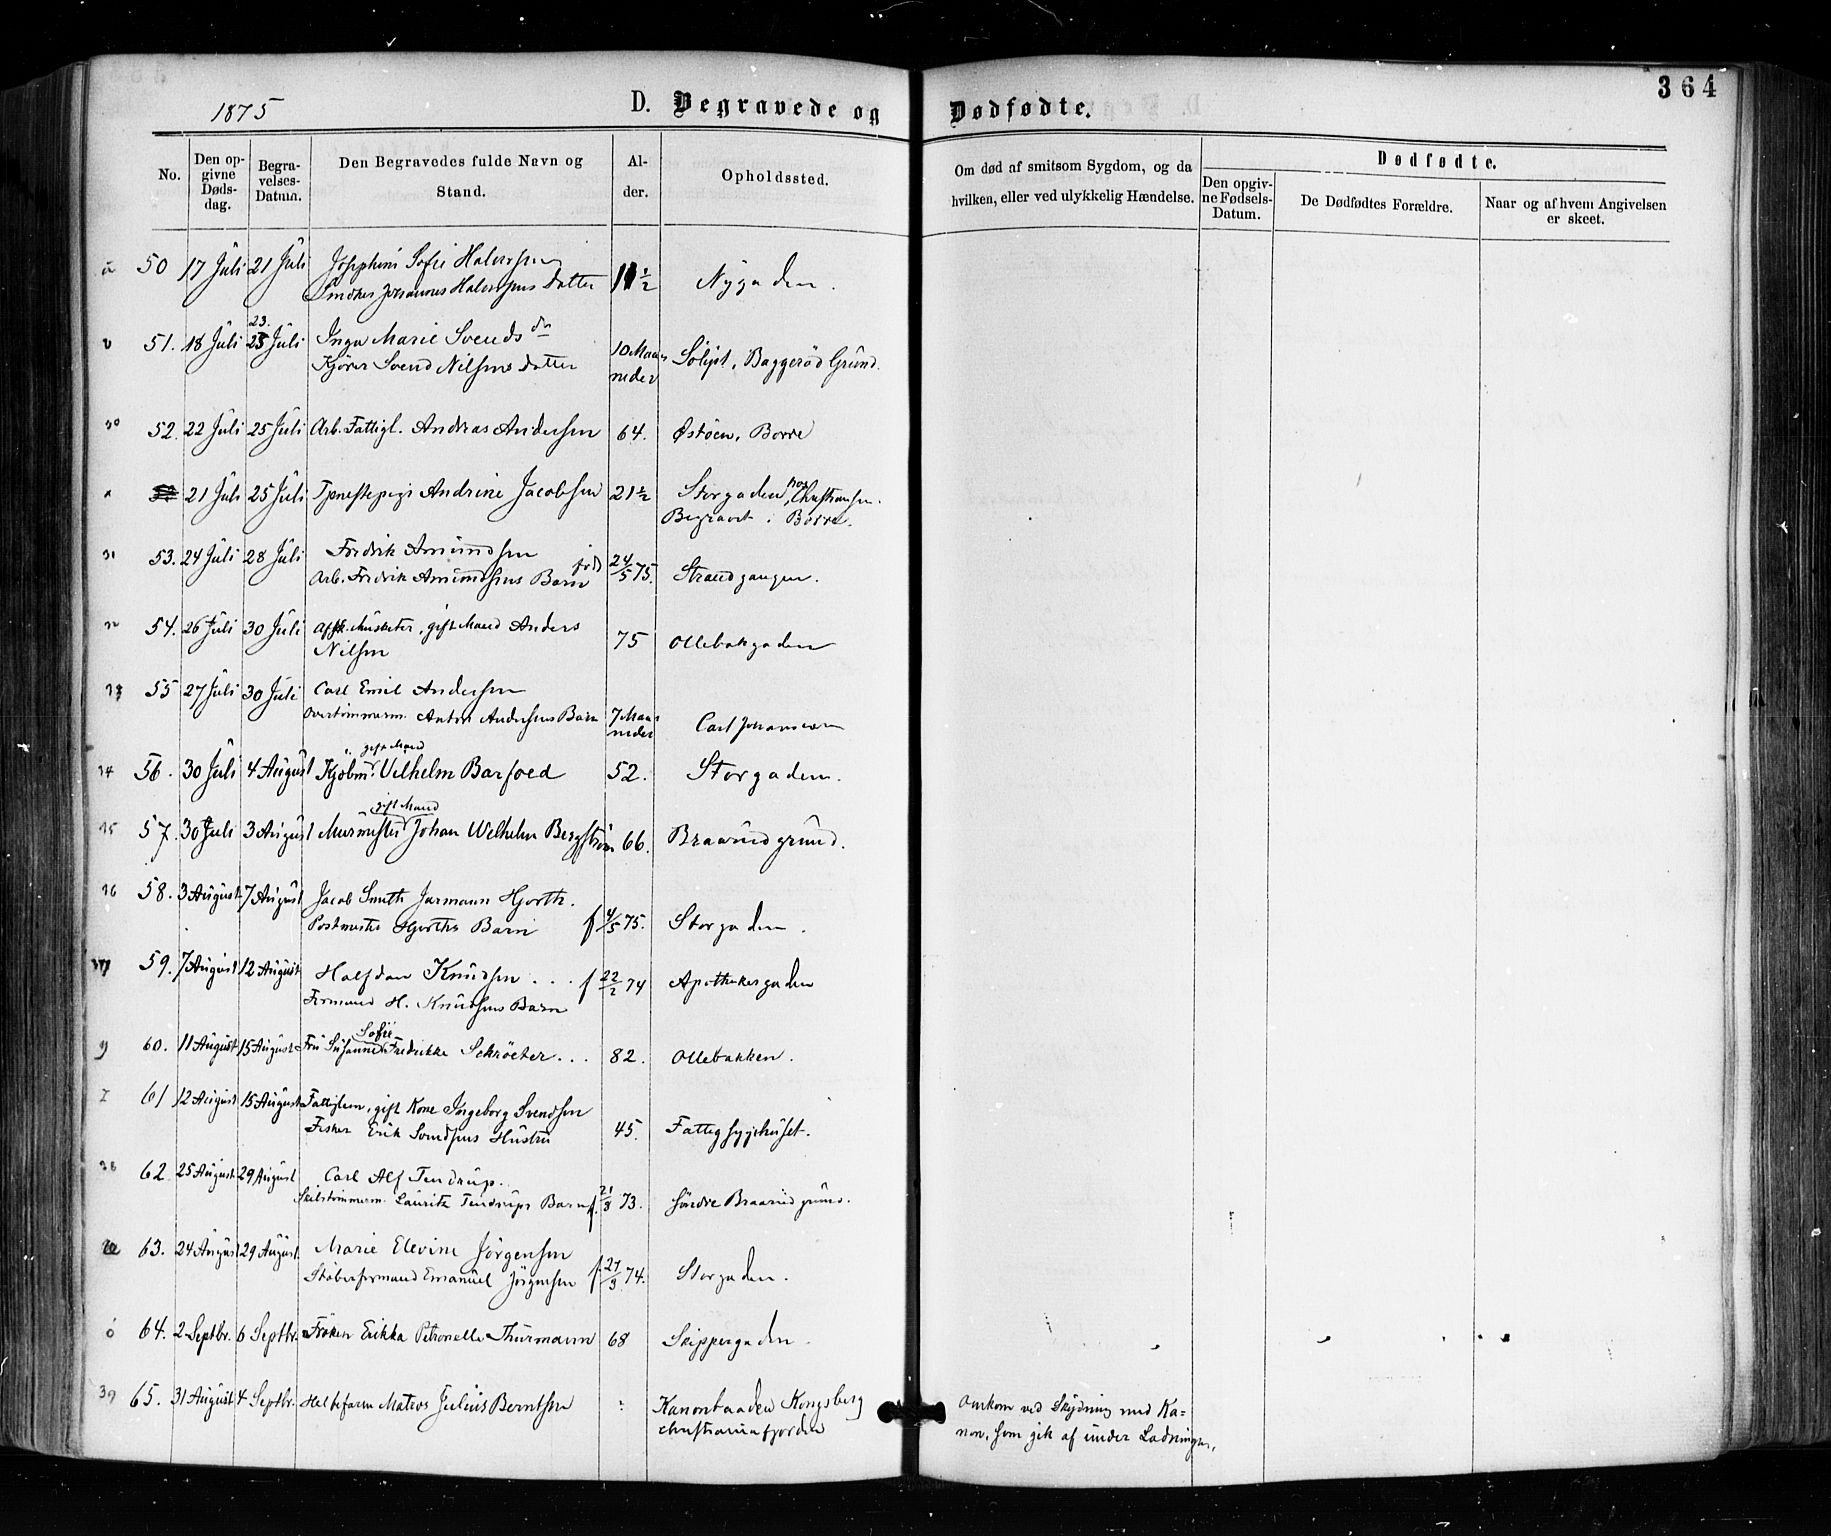 364
1875
D. Begravede og Dødfødte.
No.
Den opgivne Dødsdag.
Begravelses-Datum.
Den Begravedes fulde Navn og Stand.
Alder.
Opholdssted.
Om død af smitsom Sygdom, og da hvilken, eller ved ulykkelig Hændelse.
Dødfødte.
Den opgivne Fødsels-Datum.
De Dødfødtes Forældre.
Naar og af hvem Angivelsen er skeet.
50 17 Juli 21 Juli Josephine Sofie Halvorsen
Johannes Halvorsens Datter 1 1/2 Nygaden.
51. 18 Juli 23 Juli Inga Marie Svendsdr
Svend Nilsens Datter 10 Maaneder Baggerød Grund.
52. 22 Juli 25 Juli Arb. Fattigl. Andreas Andersen 64. Østøen, Borre
21 Juli 25 Juli Tjenestepige Andrine Jacobsen 21 1/2 Storgaden, hos Christiansen.
Begravet i Borre.
31 53. 24 Juli 28 Juli Fredrik Amundsen
Arb. Fredrik Amundsens Barn født 24/5 75. Strandgangen.
32 54. 26 Juli 30 Juli Afsk. Musketer, gift Mand Anders
Nilsen 75 Ollebakgaden
33 55 27 Juli 30 Juli Carl Emil Andersen
Overtømmerm. Anton Andersens Barn 7 Maaneder Carl Johansværn
34 56. 30 Juli 4 August Kjøbm. gift Mand Vilhelm Barfoed 52. Storgaden.
35 57. 30 Juli 3 August Murmester gift Mand Johan Wilhelm Bergstrøm 66. Braarudgrund.
36 58. 3 August 7 August Jacob Smith Jarmann Hjorth.
Postmester Hjorths Barn f 4/5 75. Storgaden.
37 59. 7 August 12 August Halfdan Knudsen . . .
Formand H. Knudsens Barn f 22/2 74 Apothekergaden
y 60. 11 August 15 August Fru Susanne Sofie Fredrikke Schrøeter . . . 82. Ollebakken.
z 61 12 August 15 August Fattiglem, gift Kone Ingeborg Svendsen
Fisker Erik Svendsens Hustru 45. Fattigsygehuset.
38 62 25 August 29 August Carl Alf Tendrup.
Skibstømmerm. Lauritz Tendrups Barn f. 21/8 73. Søndre Braarudgrund.
æ 63. 24 August 29 August Marie Elevine Jørgensen
Støberformand Emanuel Jørgensen f. 27/3 74. Storgaden.
ø 64. 2 Septbr. 6 Septbr. Frøken Erikka Petronelle Thurmann 68 Skippergaden.
39 65. 31 August 4 Septbr. Matros Julius Berntsen Kanonbaaden Kongsberg
Christianiafjorden
Omkom ved Skydning med Ka=
non, som gik af under Ladningen.